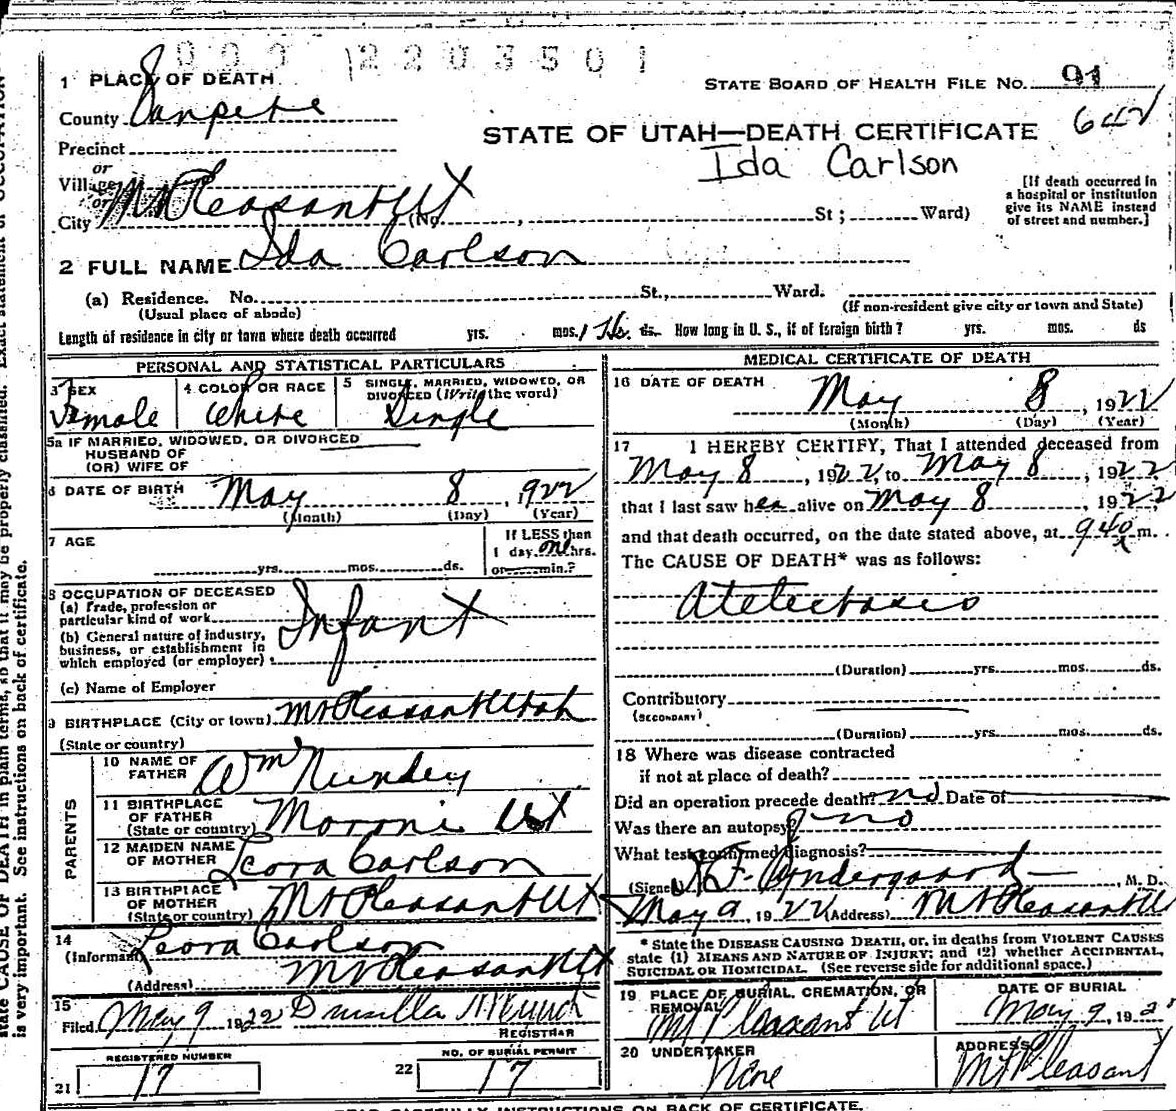 000 2203501
1 PLACE OF DEATH
STATE BOARD OF HEALTH FILE No. 91
County Sanpete
STATE OF UTAH—DEATH CERTIFICATE
Ida Carlson
Precinct
or
Village
or
City Mt Pleasant Ut (No. , St; Ward)
[If death occurred in
a hospital or institution
give its NAME instead
of street and number.]
2 FULL NAME Ida Carlson
(a) Residence. No. St., Ward.
(Usual place of abode)
(If non-resident give city or town and State)
Length of residence in city or town where death occurred yrs. mos. 1 Hr. ds. How long in U. S., if of foreign birth? yrs. mos. ds
PERSONAL AND STATISTICAL PARTICULARS
3 SEX
Female
4 COLOR OR RACE
White
5 SINGLE, MARRIED, WIDOWED, OR
DIVORCED (Write the word)
Single
5a IF MARRIED, WIDOWED, OR DIVORCED
HUSBAND OF
(OR) WIFE OF
6 DATE OF BIRTH May 8, 1922
(Month) (Day) (Year)
7 AGE
yrs. mos. ds.
If LESS than
1 day, one hrs.
or min.?
8 OCCUPATION OF DECEASED
(a) Trade, profession or
particular kind of work
Infant
(b) General nature of industry,
business, or establishment in
which employed (or employer)
(c) Name of Employer
9 BIRTHPLACE (City or town) Mt Pleasant Utah
(State or country)
PARENTS
10 NAME OF
FATHER Wm
11 BIRTHPLACE
OF FATHER
(State or country) Moroni Ut
12 MAIDEN NAME
OF MOTHER Leora Carlson
13 BIRTHPLACE
OF MOTHER
(State or country) Mt Pleasant Ut
14
(Informant) Leora Carlson
(Address) Mt Pleasant Ut
15
Filed May 9 1922 Drusilla
REGISTRAR
21 REGISTERED NUMBER
17
22 NO. OF BURIAL PERMIT
17
MEDICAL CERTIFICATE OF DEATH
16 DATE OF DEATH
May 8, 1922
(Month) (Day) (Year)
17 I HEREBY CERTIFY, That I attended deceased from
May 8, 1922, to May 8, 1922
that I last saw her alive on May 8 1922
and that death occurred, on the date stated above, at 940 m.
The CAUSE OF DEATH* was as follows:
Atelectasis
(Duration) yrs. mos. ds.
Contributory
(SECONDARY)
(Duration) yrs. mos. ds.
18 Where was disease contracted
if not at place of death?
Did an operation precede death? no Date of
Was there an autopsy? no
What test confirmed diagnosis?
(Signed) , M. D.
May 9, 1922 (Address) Mt Pleasant Ut
* State the DISEASE CAUSING DEATH, or, in deaths from VIOLENT CAUSES
state (1) MEANS AND NATURE OF INJURY; and (2) whether ACCIDENTAL,
SUICIDAL OR HOMICIDAL. (See reverse side for additional space.)
19 PLACE OF BURIAL, CREMATION, OR
REMOVAL
Mt Pleasant Ut
DATE OF BURIAL
May 9, 192
20 UNDERTAKER
None
ADDRESS
Mt Pleasant
state CAUSE OF DEATH in plain terms, so that it may be properly classified. Exact statement of OCCUPATION
is very important. See instructions on back of certificate.
READ CAREFULLY INSTRUCTIONS ON BACK OF CERTIFICATE.